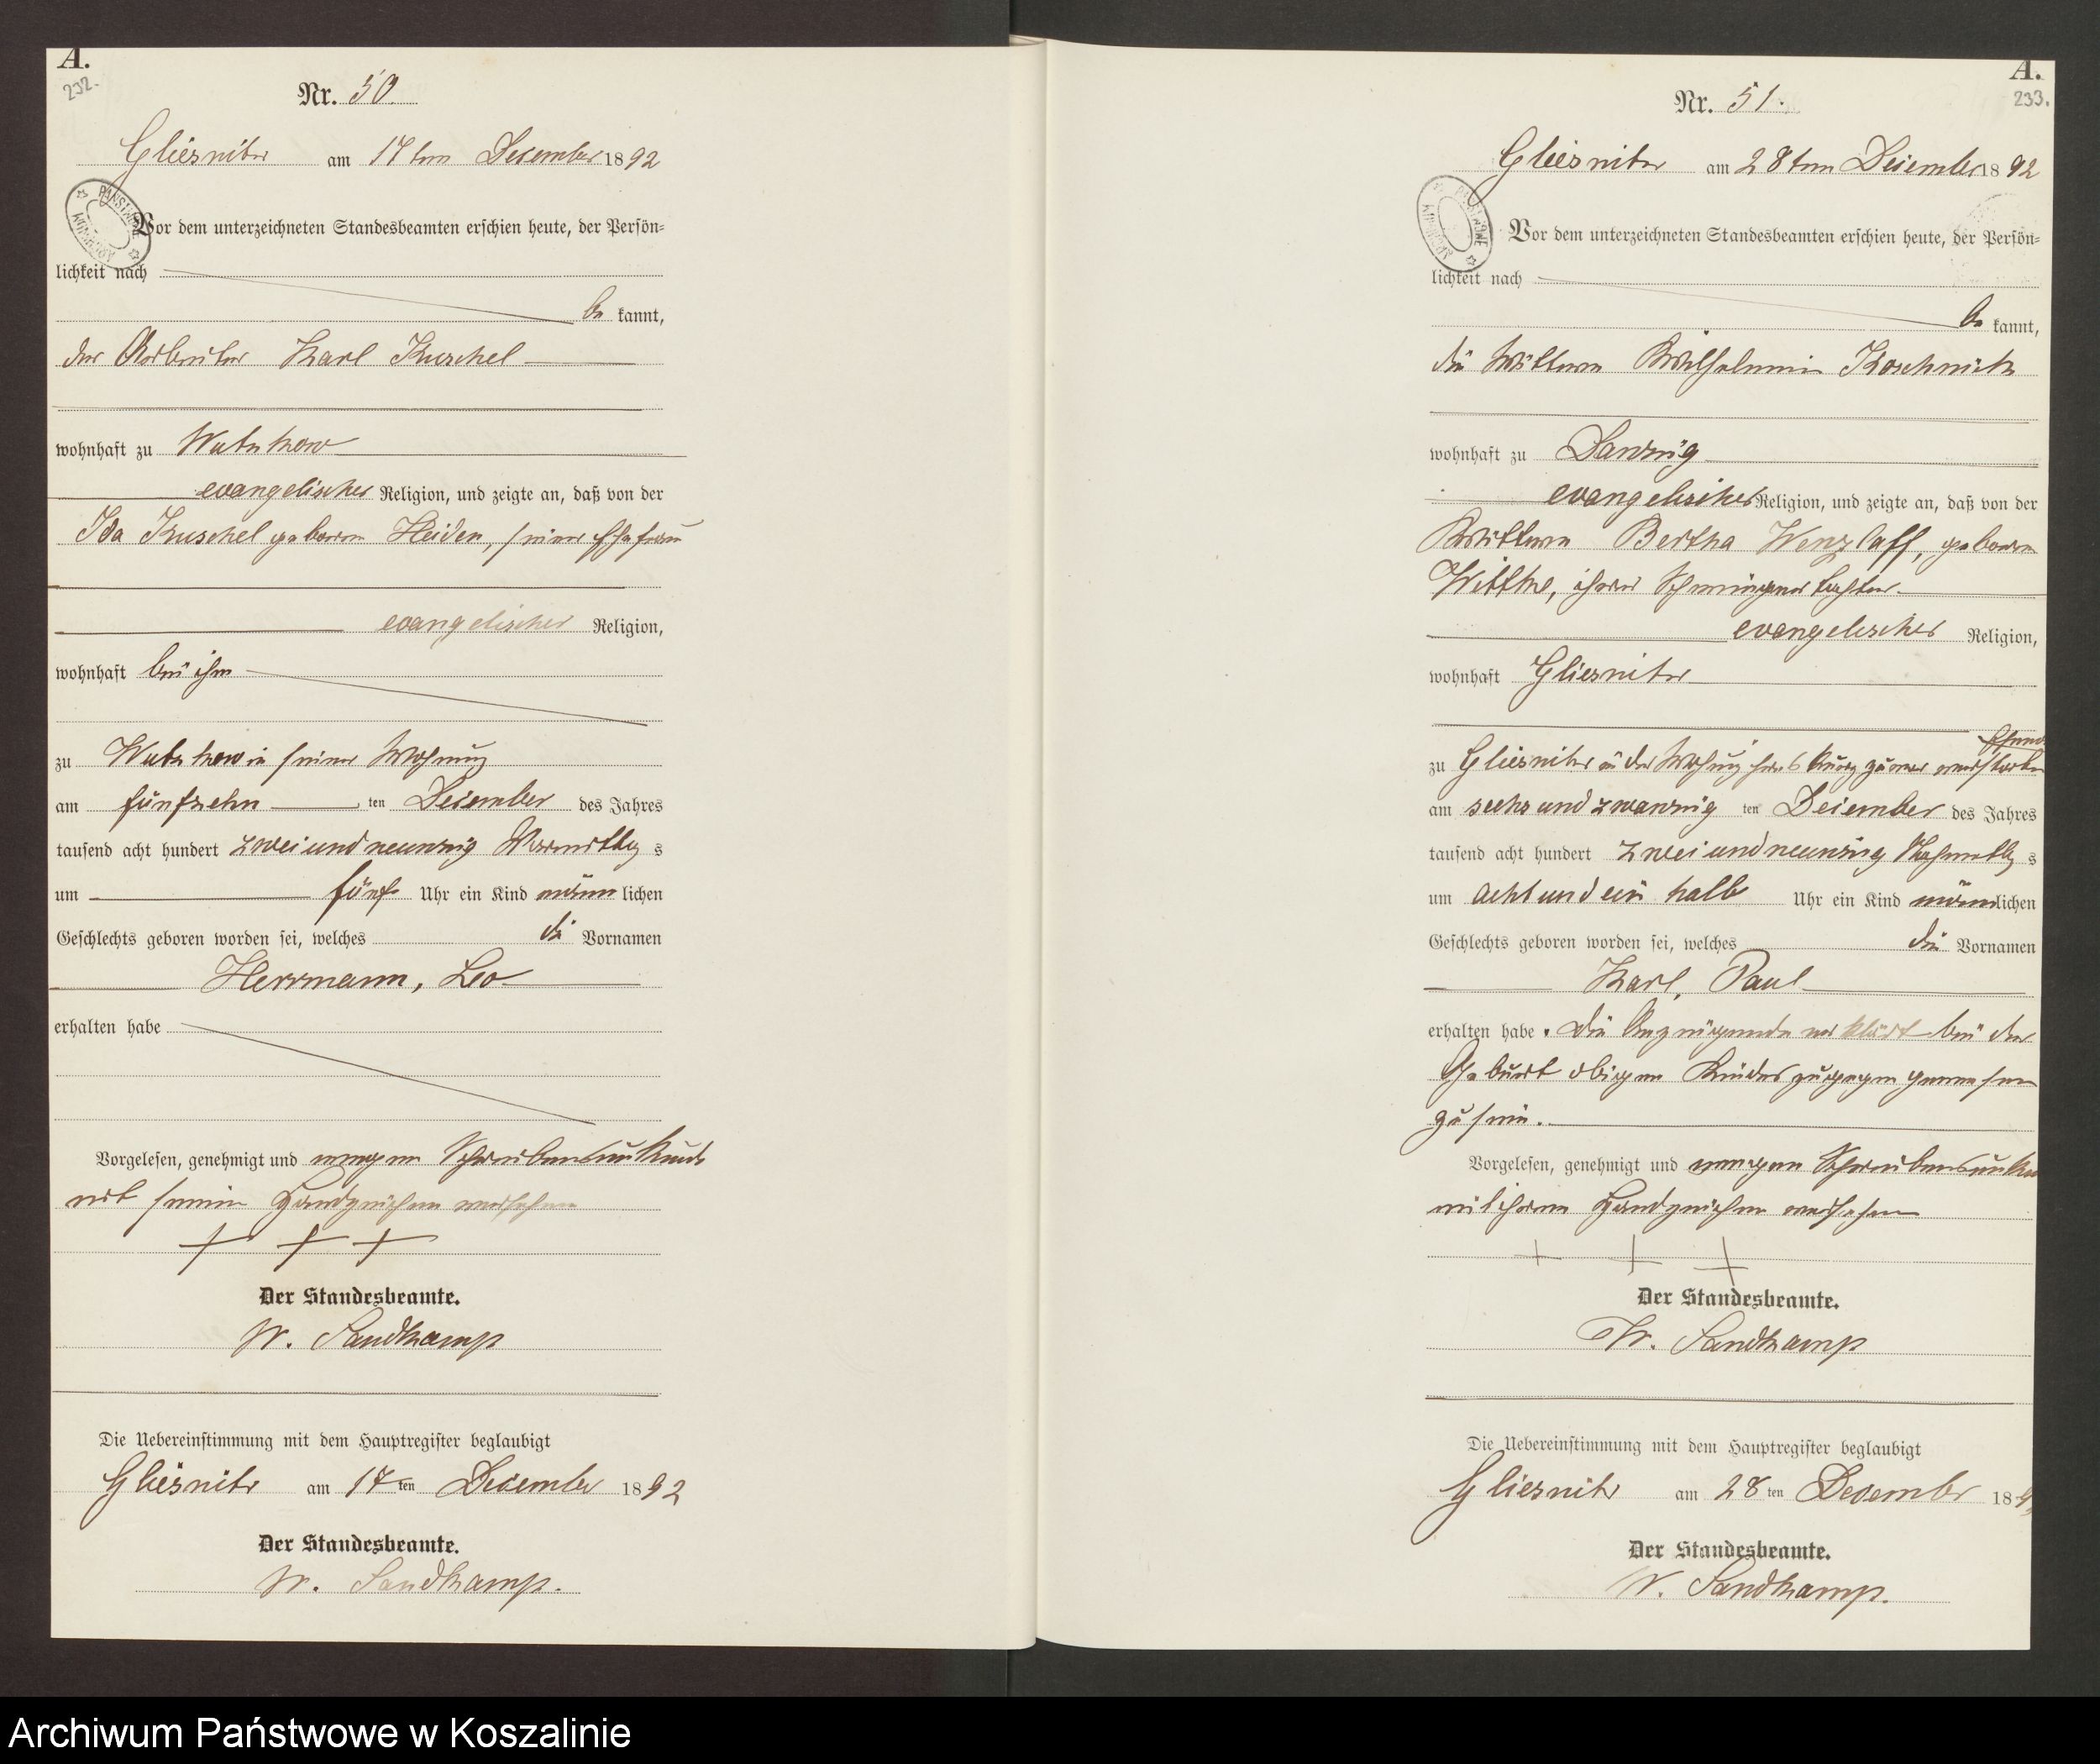 A.
232.
Nr. 50.
Gliesnitz am 17ten December 1892
Vor dem unterzeichneten Standesbeamten erschien heute, der Persön-
lichkeit nach
be kannt,
der Arbeiter Karl Kuschel
wohnhaft zu Watzkow
evangelischer Religion, und zeigte an, daß von der
Ida Kuschel geboren Heiden, seiner Ehefrau
evangelischer Religion,
wohnhaft bei ihm
zu Watzkow in seiner Wohnung
am fünfzehn ten December des Jahres
tausend acht hundert zweiundneunzig Vormittag s
um fünf Uhr ein Kind männ lichen
Geschlechts geboren worden sei, welches die Vornamen
Herrmann, Leo
erhalten habe
Vorgelesen, genehmigt und wegen Schreibensunkunde
mit seinem Handzeichen versehen
+ + +
Der Standesbeamte.
W. Sandkamp
Die Uebereinstimmung mit dem Hauptregister beglaubigt
Gliesnitz am 17ten December 1892
Der Standesbeamte.
W. Sandkamp.
A.
233.
Nr. 51.
Gliesnitz am 28ten December 1892
Vor dem unterzeichneten Standesbeamten erschien heute, der Persön-
lichkeit nach
be kannt,
die Wittwe Wilhelmine Koschnick
wohnhaft zu Danzig
evangelischer Religion, und zeigte an, daß von der
Wittwe Bertha Wenzlaff, geboren
Witthe, ihrer Schwiegertochter
evangelischer Religion,
wohnhaft Gliesnitz
zu Gliesnitz in der Wohnung ihres kurz zuvor verstorbenen
Ehemannes
am sechsundzwanzig ten December des Jahres
tausend acht hundert zweiundneunzig Nachmittag s
um acht und ein halb Uhr ein Kind männlichen
Geschlechts geboren worden sei, welches die Vornamen
Karl, Paul
erhalten habe. Die Anzeigende erklärt bei der
Geburt obigen Kindes zugegen gewesen
zu sein.
Vorgelesen, genehmigt und wegen Schreibensunku
mit ihrem Handzeichen versehen
+ + +
Der Standesbeamte.
W. Sandkamp
Die Uebereinstimmung mit dem Hauptregister beglaubigt
Gliesnitz am 28ten December 189
Der Standesbeamte.
W. Sandkamp.
Archiwum Państwowe w Koszalinie